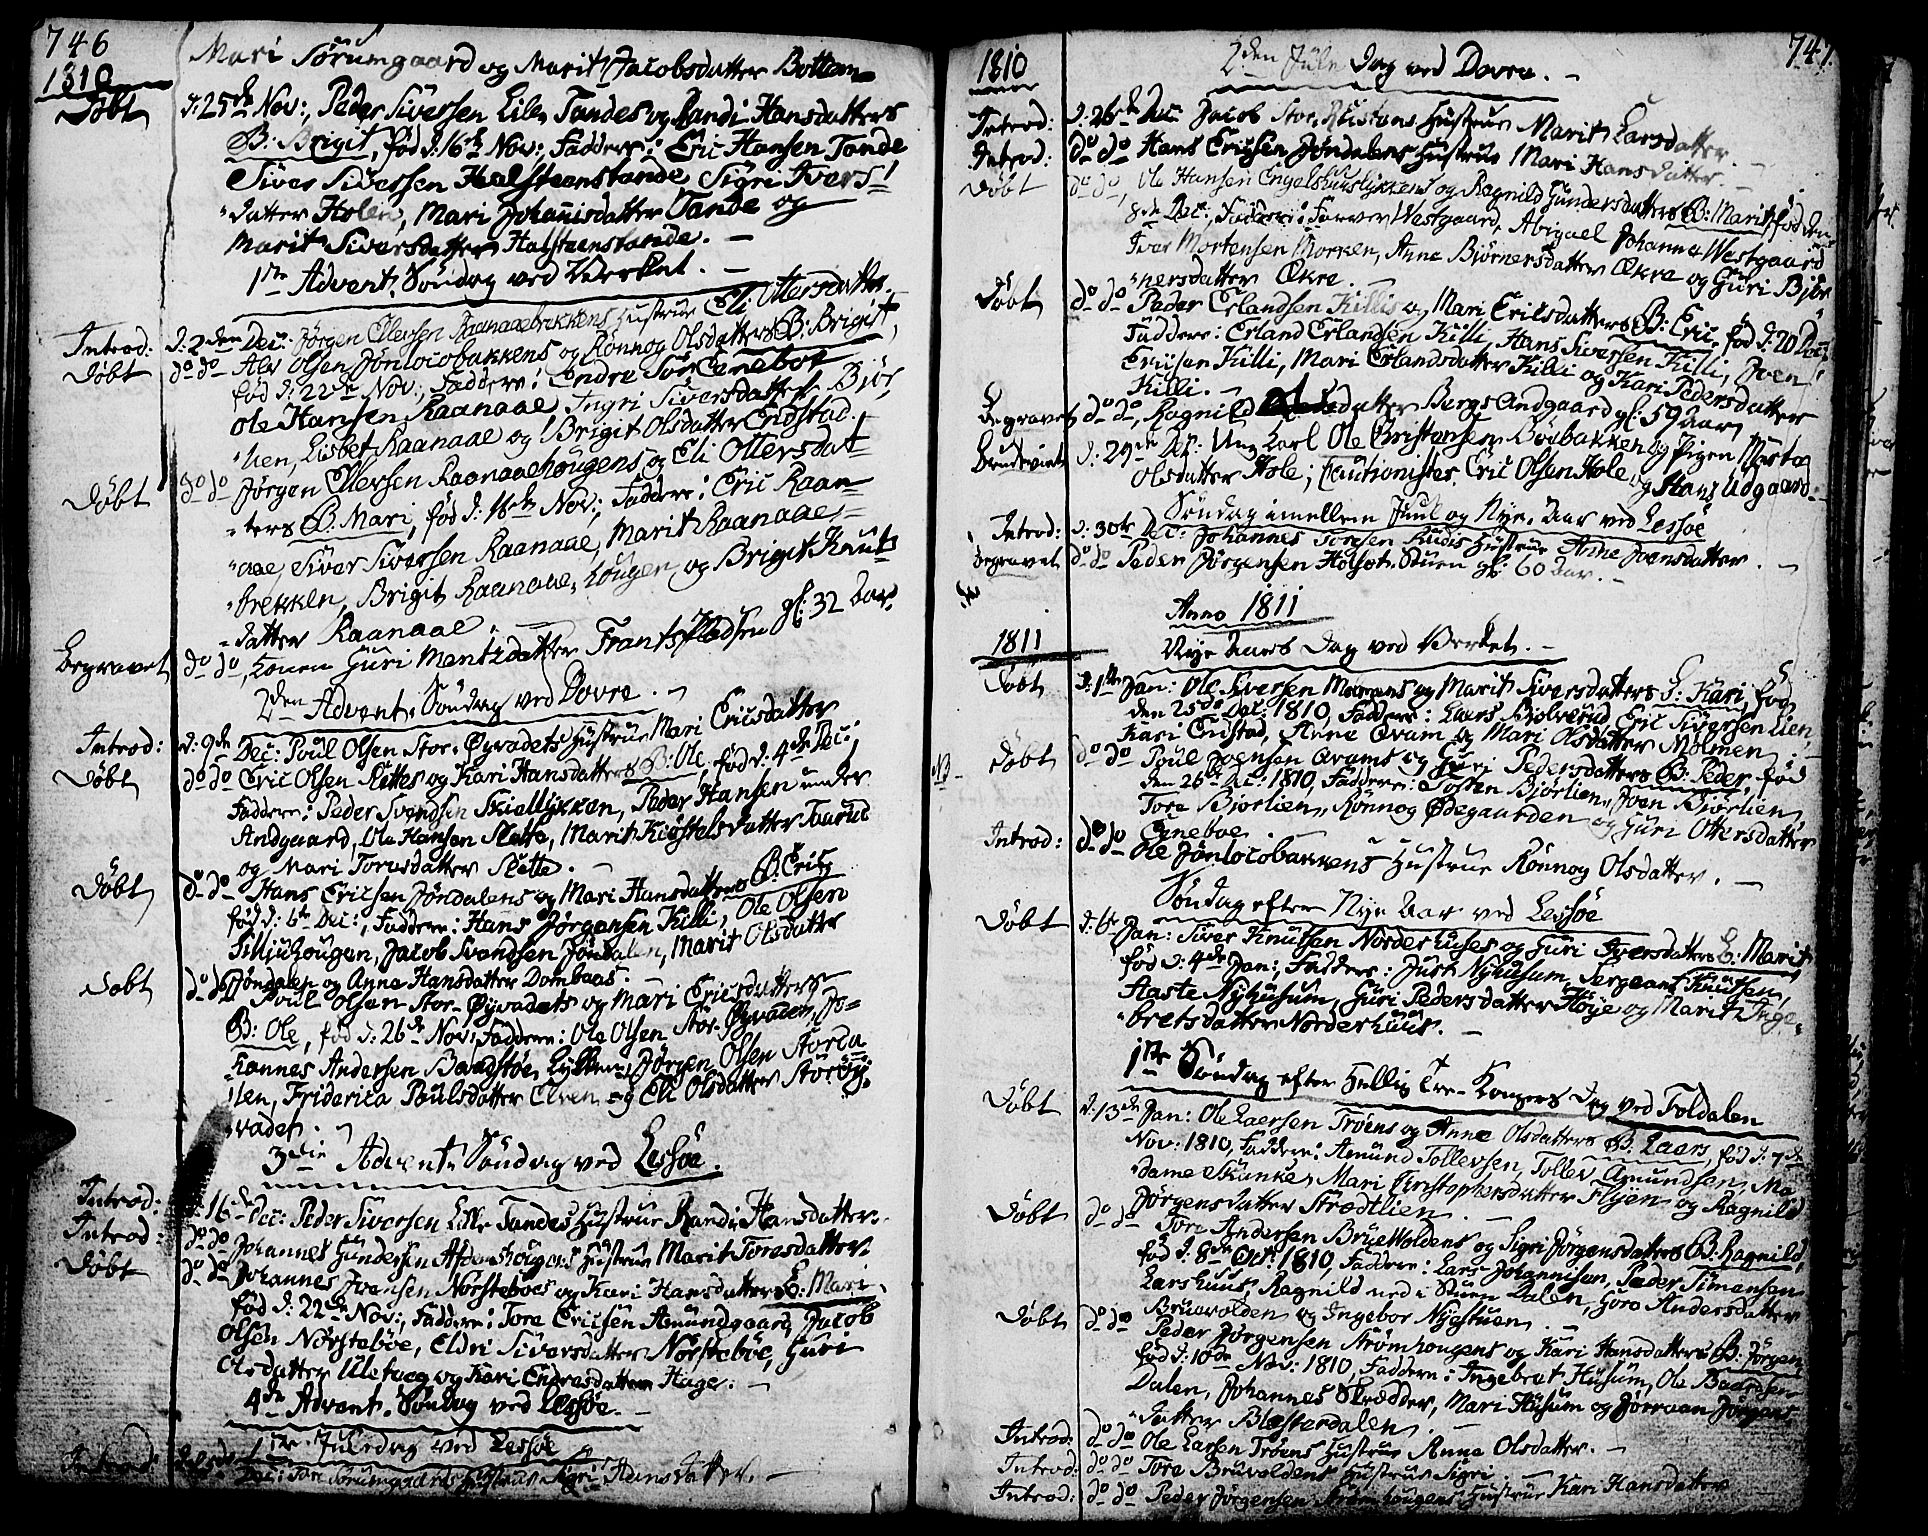 746
1810
Mari Sørumgaard og Marit Jacobsdatter Bottem
Døbt d: 25de Nov:, Peder Siversen Lille Tandes og Randi Hansdatters
B: Brigit, fød d: 16de Nov:, Faddere: Eric Hansen Tande
Siver Siversen Halsteenstande Sigri Ivers-
datter Holen, Mari Johannisdatter Tande og
Marit Siversdatter Halsteenstande. -
1ste Advent, Søndag ved Verket. -
Introd: d: 2den Dec: Jørgen Ellevsen Raanaaebrekkens Hustrue Eli Ottersdatter.
Døbt do do Olsen Jønlocobakkens og Rønnog Olsdatters B: Brigit,
fød d: 22de Nov:, Faddere: Endre Eneboe
Ole Hansen Raanaae, Ingri Siversdatter Bjør-
lien, Lisbet Raanaae og Brigit Olsdatter Endstad.
Døbt do do Jørgen Ellevsen Raanaaehougens og Eli Ottersdat-
ters B: Mari, fød d: 18de Nov:, Faddere: Eric Raan-
aae, Siver Siversen Raanaae, Marit Raanaae-
brekken, Brigit Raanaae, hougen og Brigit Knuts
datter Raanaae. -
Begravet do do, Konen Guri Mentzdatter Frantspladsen gl: 32 Aar.
2den Advent, Søndag ved Dovre. -
Introd: d: 9de Dec: Poul Olsen Stor-Øyvadets Hustrue Mari Ericsdatter
Døbt do do Eric Olsen Slettes og Kari Hansdatters B: Ole, fød d: 4de Dec:,
Faddere: Peder Svendsen Skiallykken, Peder Hansen under
Andgaard, Ole Hansen Slette, Marit Kiøstelsdatter Taarud
og Mari Toresdatter Slette. -
Døbt do do Hans Ericsen Jøndalens og Mari Hansdatters B: Eric,
fød d: 6te Dec:, Faddere: Hans Jørgensen Killi, Ole Olsen
Silljuhougen, Jacob Svendsen Jøndalen, Marit Olsdatter
Jøndalen og Anne Hansdatter Dombaas. -
Døbt do do Poul Olsen Stor-Øyvadets og Mari Ericsdatters
B: Ole, fød d: 26de Nov:, Faddere: Ole Olsen Stor-Øyvaden, Jo-
hannes Andersen Baadstøe Lykken, Jørgen Olsen Storda
len, Friderica Poulsdatter Elven og Eli Olsdatter Storøy-
vadet. -
3die Advent, Søndag ved Lessøe.
Introd: d: 16de Dec: Peder Siversen Lille Tandes Hustrue Randi Hansdatter.
Introd: do do Johannes Gundersen Hustrue Marit Toresdatter.
Døbt do do Johannes Joensen Norsteboes og Kari Hansdatters B: Mari
fød d: 22de Nov:, Faddere: Tore Ericsen Amundgaard, Jacob
Olsen Nørstebøe, Eldri Siversdatter Nørstebøe, Guri
Olsdatter og Kari Endresdatter Hage. -
4de Advent, Søndag ved Lessøe. -
1ste Juledag ved Lessøe
Introd: Dec: Tore Sørumgaards Hustrue Sigri Hansdatter. -
747
1810
2den Jule Dag ved Dovre. -
Introd: d: 26de Dec: Jacob Hustrue Marit Larsdatter. -
Introd: do do Hans Ericsen Jøndalens Hustrue Mari Hansdatter. -
Døbt do do, Ole Hansen Engelshuuslykkens og Ragnild Gundersdatters B: Marit, fød den
8de Dec:, Faddere: Westgaard, Abigael Johanna Westgaard
Iver Mortensen Morken, Anne Bjørnersdatter Økre og Guri Bjør
nersdatter Økre. -
Døbt do do Peder Erlandsen Killis og Mari Ericsdatters B: Eric, fød d: 20 Dec:
Faddere: Erland Erlandsen Killi, Hans Siversen Killi, Joen
Ericsen Killi, Mari Erlandsdatter Killi og Kari Pedersdatter
Killi. -
Begravet do do, Ragnild datter Bergs Andgaard gl: 59 Aar
Brudeviet d: 29de Dec: Ung Karl Ole Christensen Bøebakken og Pigen Marta
Olsdatter Hole; Cautionister, Eric Olsen Hole og Hans Udgaard. -
Søndag imellem Juul og Nye-Aar ved Lessøe
Introd: d: 30te Dec: Johannes Toresen Hustrue Anne Joensdatter. -
Begravet do do Peder Jørgensen Holset-Stuen gl: 60 Aar. -
Anno 1811
1811
Nye Aars Dag ved Verket. -
Døbt d: 1ste Jan: Ole Siversen og Marit Siversdatters B: Kari, fød
den 25de Dec: 1810, Faddere: Lars Bjølverud, Eric Siversen Lien,
Kari Enstad, Anne Qvam og Mari Olsdatter Mølmen. -
NB - Døbt do do Poul Joensen Qvams og Guri Pedersdatters B: Peder, fød
den 26de Dec: 1810, Faddere: Tosten Bjørlien, Joen Bjørlien,
Tore Bjørlien, Rønnog Ødegaarden og Guri Ottersdatter
Eneboe. -
Introd: do do Ole Jønlocobakkens Hustrue Rønnog Olsdatter. -
Søndag efter Nye Aar ved Lessøe
Døbt d: 6te Jan: Siver Knutsen Nordeshuses og Guri Iversdatters B: Marit
fød d: 4de Jan:, Faddere: Just Nyhusum, Sergeant Knutsen,
Aaste Nyhusum, Guri Pedersdatter Høye og Marit Inge-
bretsdatter Norderhuus. -
1ste Søndag efter Hellig Tre-Konger Dag ved Foldalen
Døbt d: 13de Jan: Ole Larsen Trøens og Anne Olsdatters B: Lars, fød d: 7de
Nov: 1810, Faddere: Amund Tollevsen, Tollev Amundsen, Ma-
dame Skanke, Mari Christophersdatter Flyen og Ragnild
Jørgensdatter Strødtlien. -
Døbt do do Tore Andersen Bryewoldens og Sigri Jørgensdatters B: Ragnild,
fød d: 8de Oct: 1810, Faddere: Lars Johannisen, Peder Simensen
Larshuus, Ragnild ned i Stuen Dalen, Goro Andersdatter
Bruevolden og Ingebor Nyestuen. -
Døbt do do Peder Jørgensen Strømhougens og Kari Hansdatters B: Jørgen
fød d: 10de Nov: 1810, Faddere: Ingebret Husum, Ole
Dalen, Johannes Skrædder, Mari Husum og Jørgens
datter Blæsterdalen. -
Introd: do do Ole Larsen Trøens Hustrue Anne Olsdatter. -
Introd: do do Tore Bruvoldens Hustrue Sigri. -
Introd: do do Peder Jørgensen Strømhougens Hustrue Kari Hansdatter